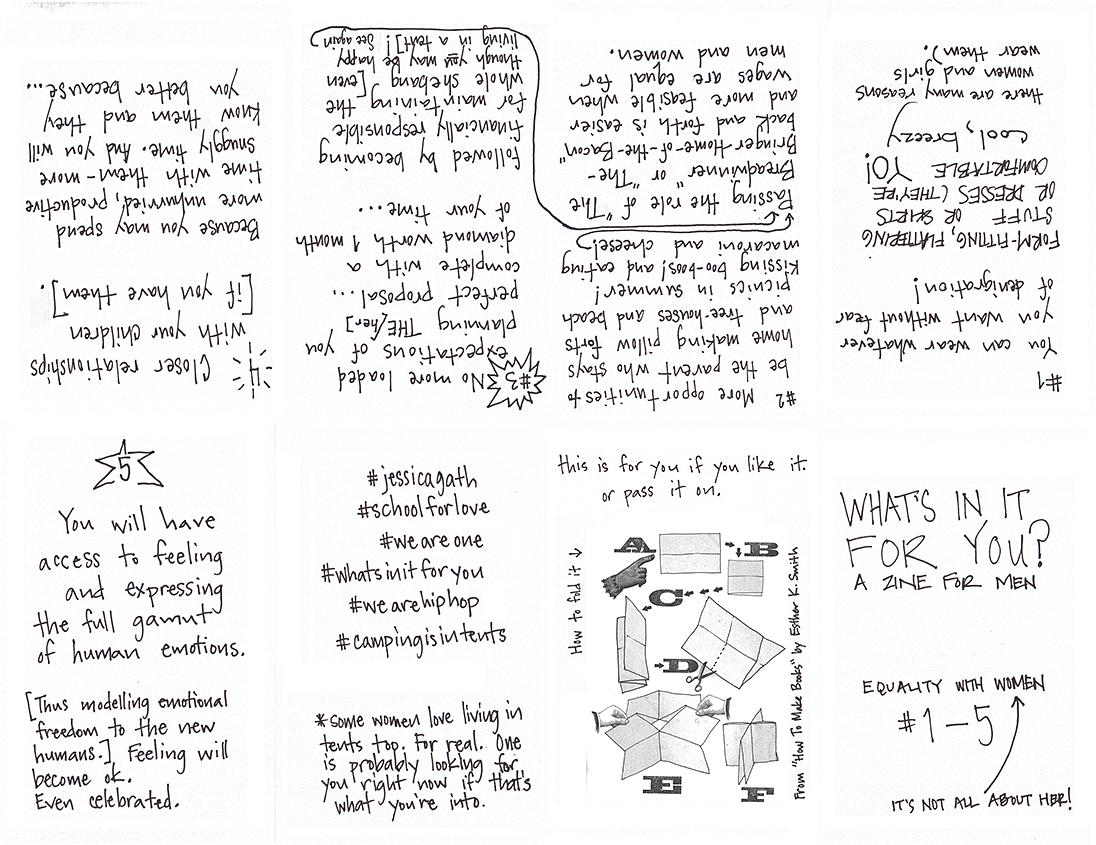 WHAT'S IN IT
FOR YOU?
A ZINE FOR MEN
EQUALITY WITH WOMEN
#1-5
IT'S NOT ALL ABOUT HER!
#1
You can wear whatever
you want without fear
of denigration!
FORM-FITTING, FLATTERING
STUFF OR SKIRTS
OR DRESSES (THEY'RE
COMFORTABLE YO!
cool, breezy
there are many reasons
women and girls
wear them).
#2 More opportunities to
be the parent who stays
home making pillow forts
and tree-houses and beach
picnics in summer!
Kissing boo-boos! and eating
macaroni and cheese!
Passing the role of "The
Breadwinner" or "The-
Bringer-Home-of-the-Bacon"
back and forth is easier
and more feasible when
wages are equal for
men and women.
#3 No more loaded
expectations of you
planning THE [her]
perfect proposal...
complete with a
diamond worth 1 month
of your time...
followed by becoming
financially responsible
for maintaining the
whole shebang [even
though you may be happy
living in a tent]! see again
4 Closer relationships
with your children
[if you have them].
Because you may spend
more unhurried, productive
time with them-more
snuggly time. And you will
know them and they
you better because...
5
You will have
access to feeling
and expressing
the full gamut
of human emotions.
[Thus modelling emotional
freedom to the new
humans.] Feeling will
become ok.
Even celebrated.
#jessicagath
#schoolforlove
#weareone
#whatsinitforyou
#wearehiphop
#campingisintents
*some women love living in
tents too. For real. One
is probably looking for
you right now if that's
what you're into.
this is for you if you like it.
or pass it on.
How to fold it ↓
A
B
C
D
E
F
From "How To Make Books" by Esther K. Smith